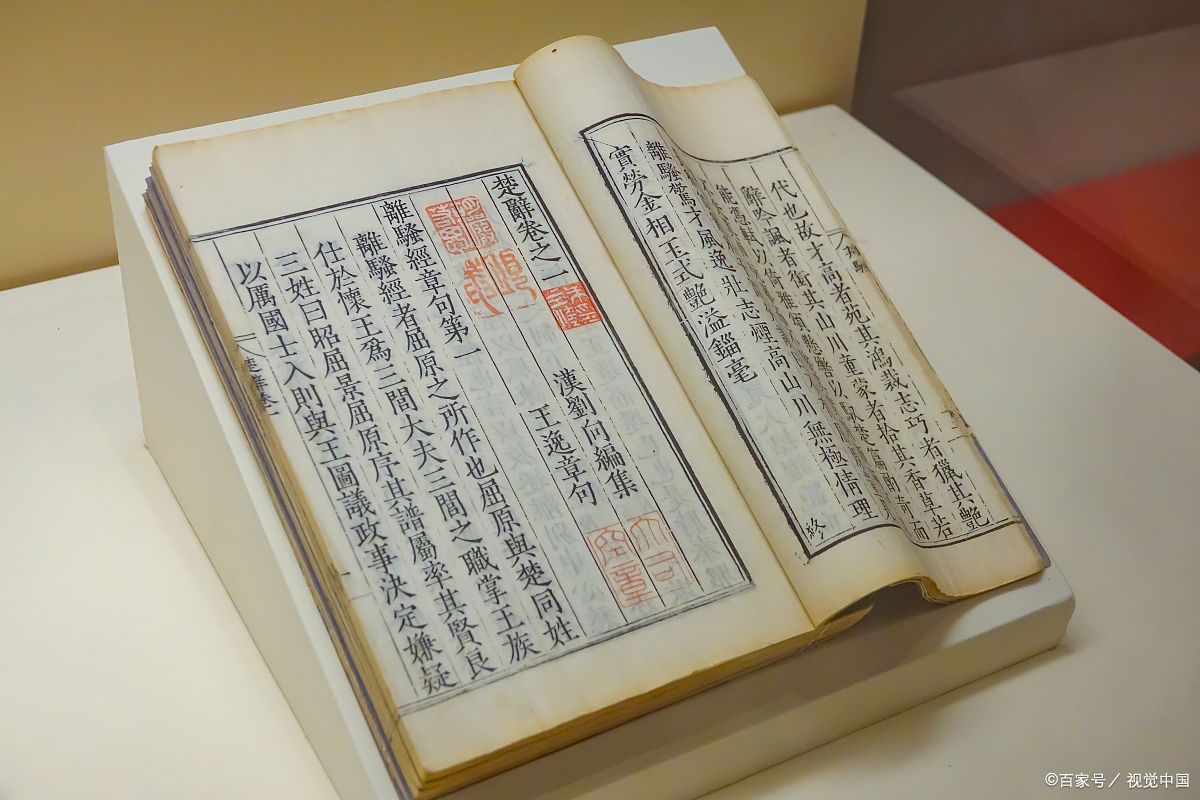 代也故才高者苑其鴻裁志巧者獵其艷
辭吟諷者銜其山川童蒙者拾其香草若
能憑軾以倚雅頌懸轡以馭楚篇酌奇而
離騷驚才風逸壯志煙高山川無極情理
實勞金相玉式艷溢錙毫
終
楚辭卷之一
漢劉向編集
王逸章句
離騷經章句第一
離騷經者屈原之所作也屈原與楚同姓
仕於懷王爲三閭大夫三閭之職掌王族
三姓曰昭屈景屈原序其譜屬率其賢良
以厲國士入則與王圖議政事決定嫌疑
楚辭卷一
©百家号／视觉中国